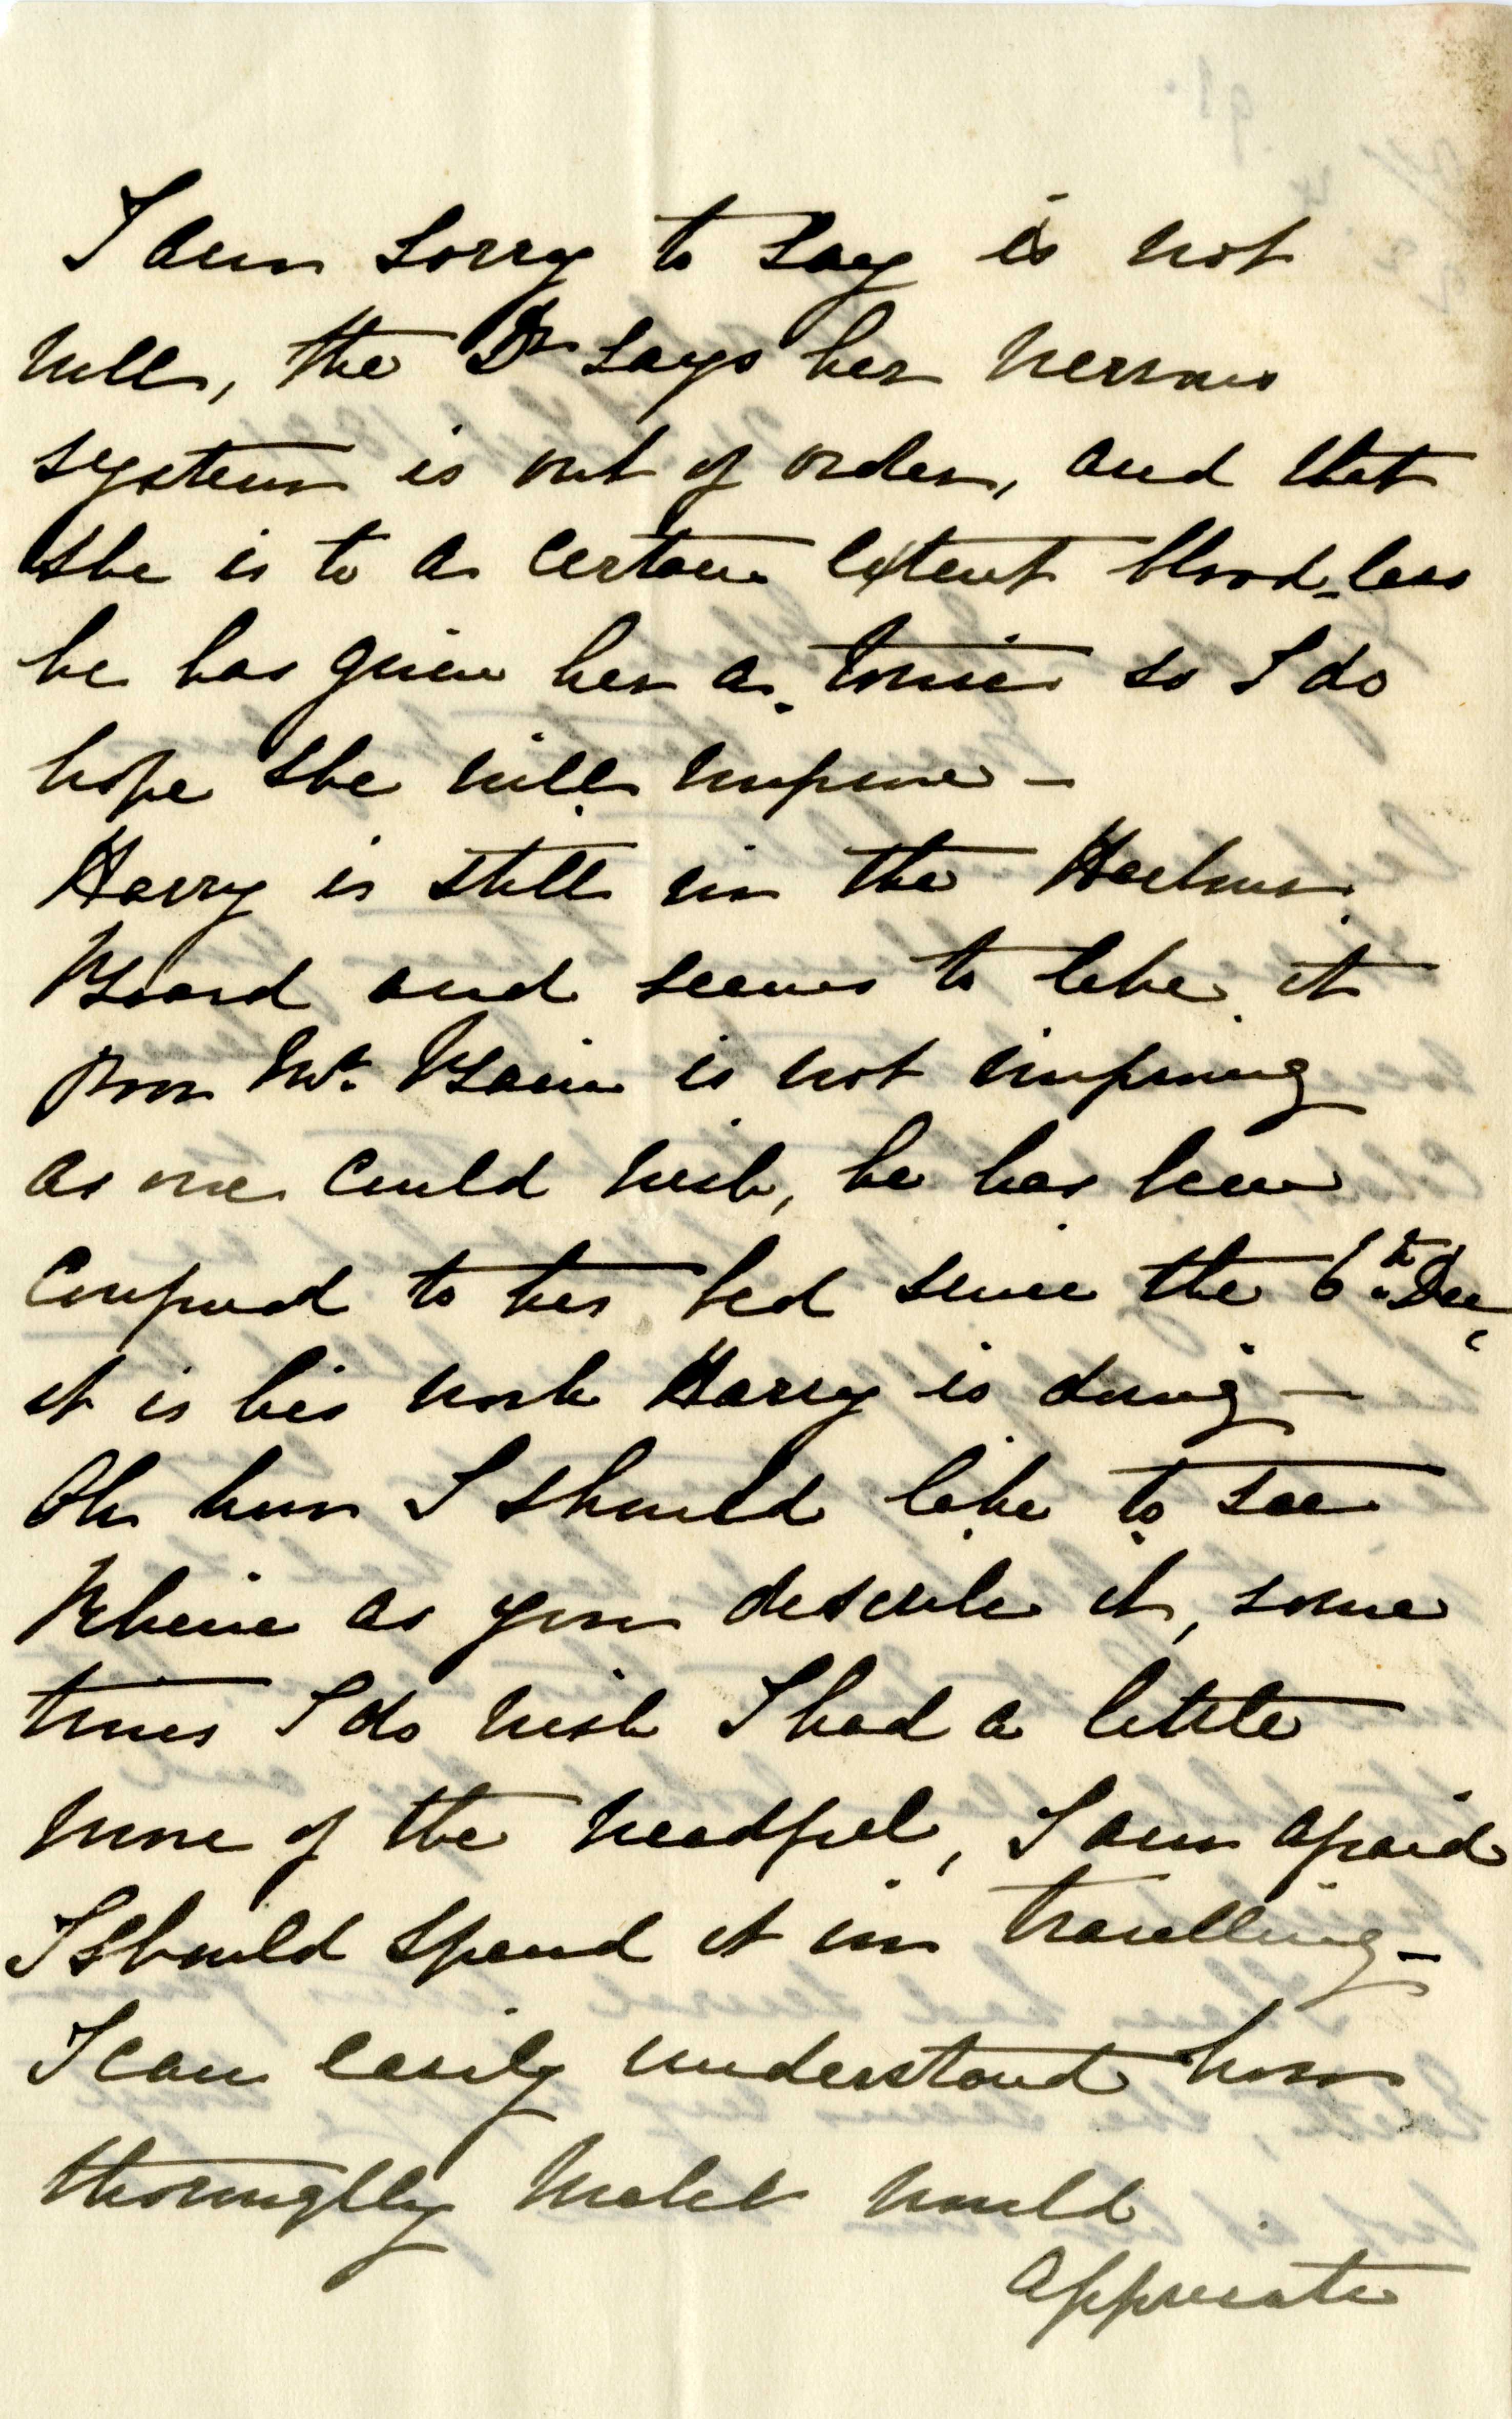 I am sorry to say is not
well, the Dr says her nervous
system is out of order, and that
she is to a certain extent blood-less
he has given her a tonic so I do
hope she will improve -
Harry is still in the Harbour
Board and seems to like it
poor Mr. Bain is not improving
as one could wish, he has been
confined to his bed since the 6th. Dec,
it is his work Harry is doing -
Oh how I should like to see
Rhine as you describe it, some
times I do wish I had a little
more of the needful, I am afraid
I should spend it in travelling -
I can easily understand how
thoroughly Mabel would
appreciate